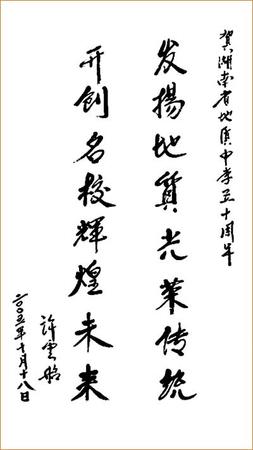 贺湖南省地质中学五十周年
发揚地質光荣传统
开創名校輝煌未来
許云昭
二〇〇五年十月十八日